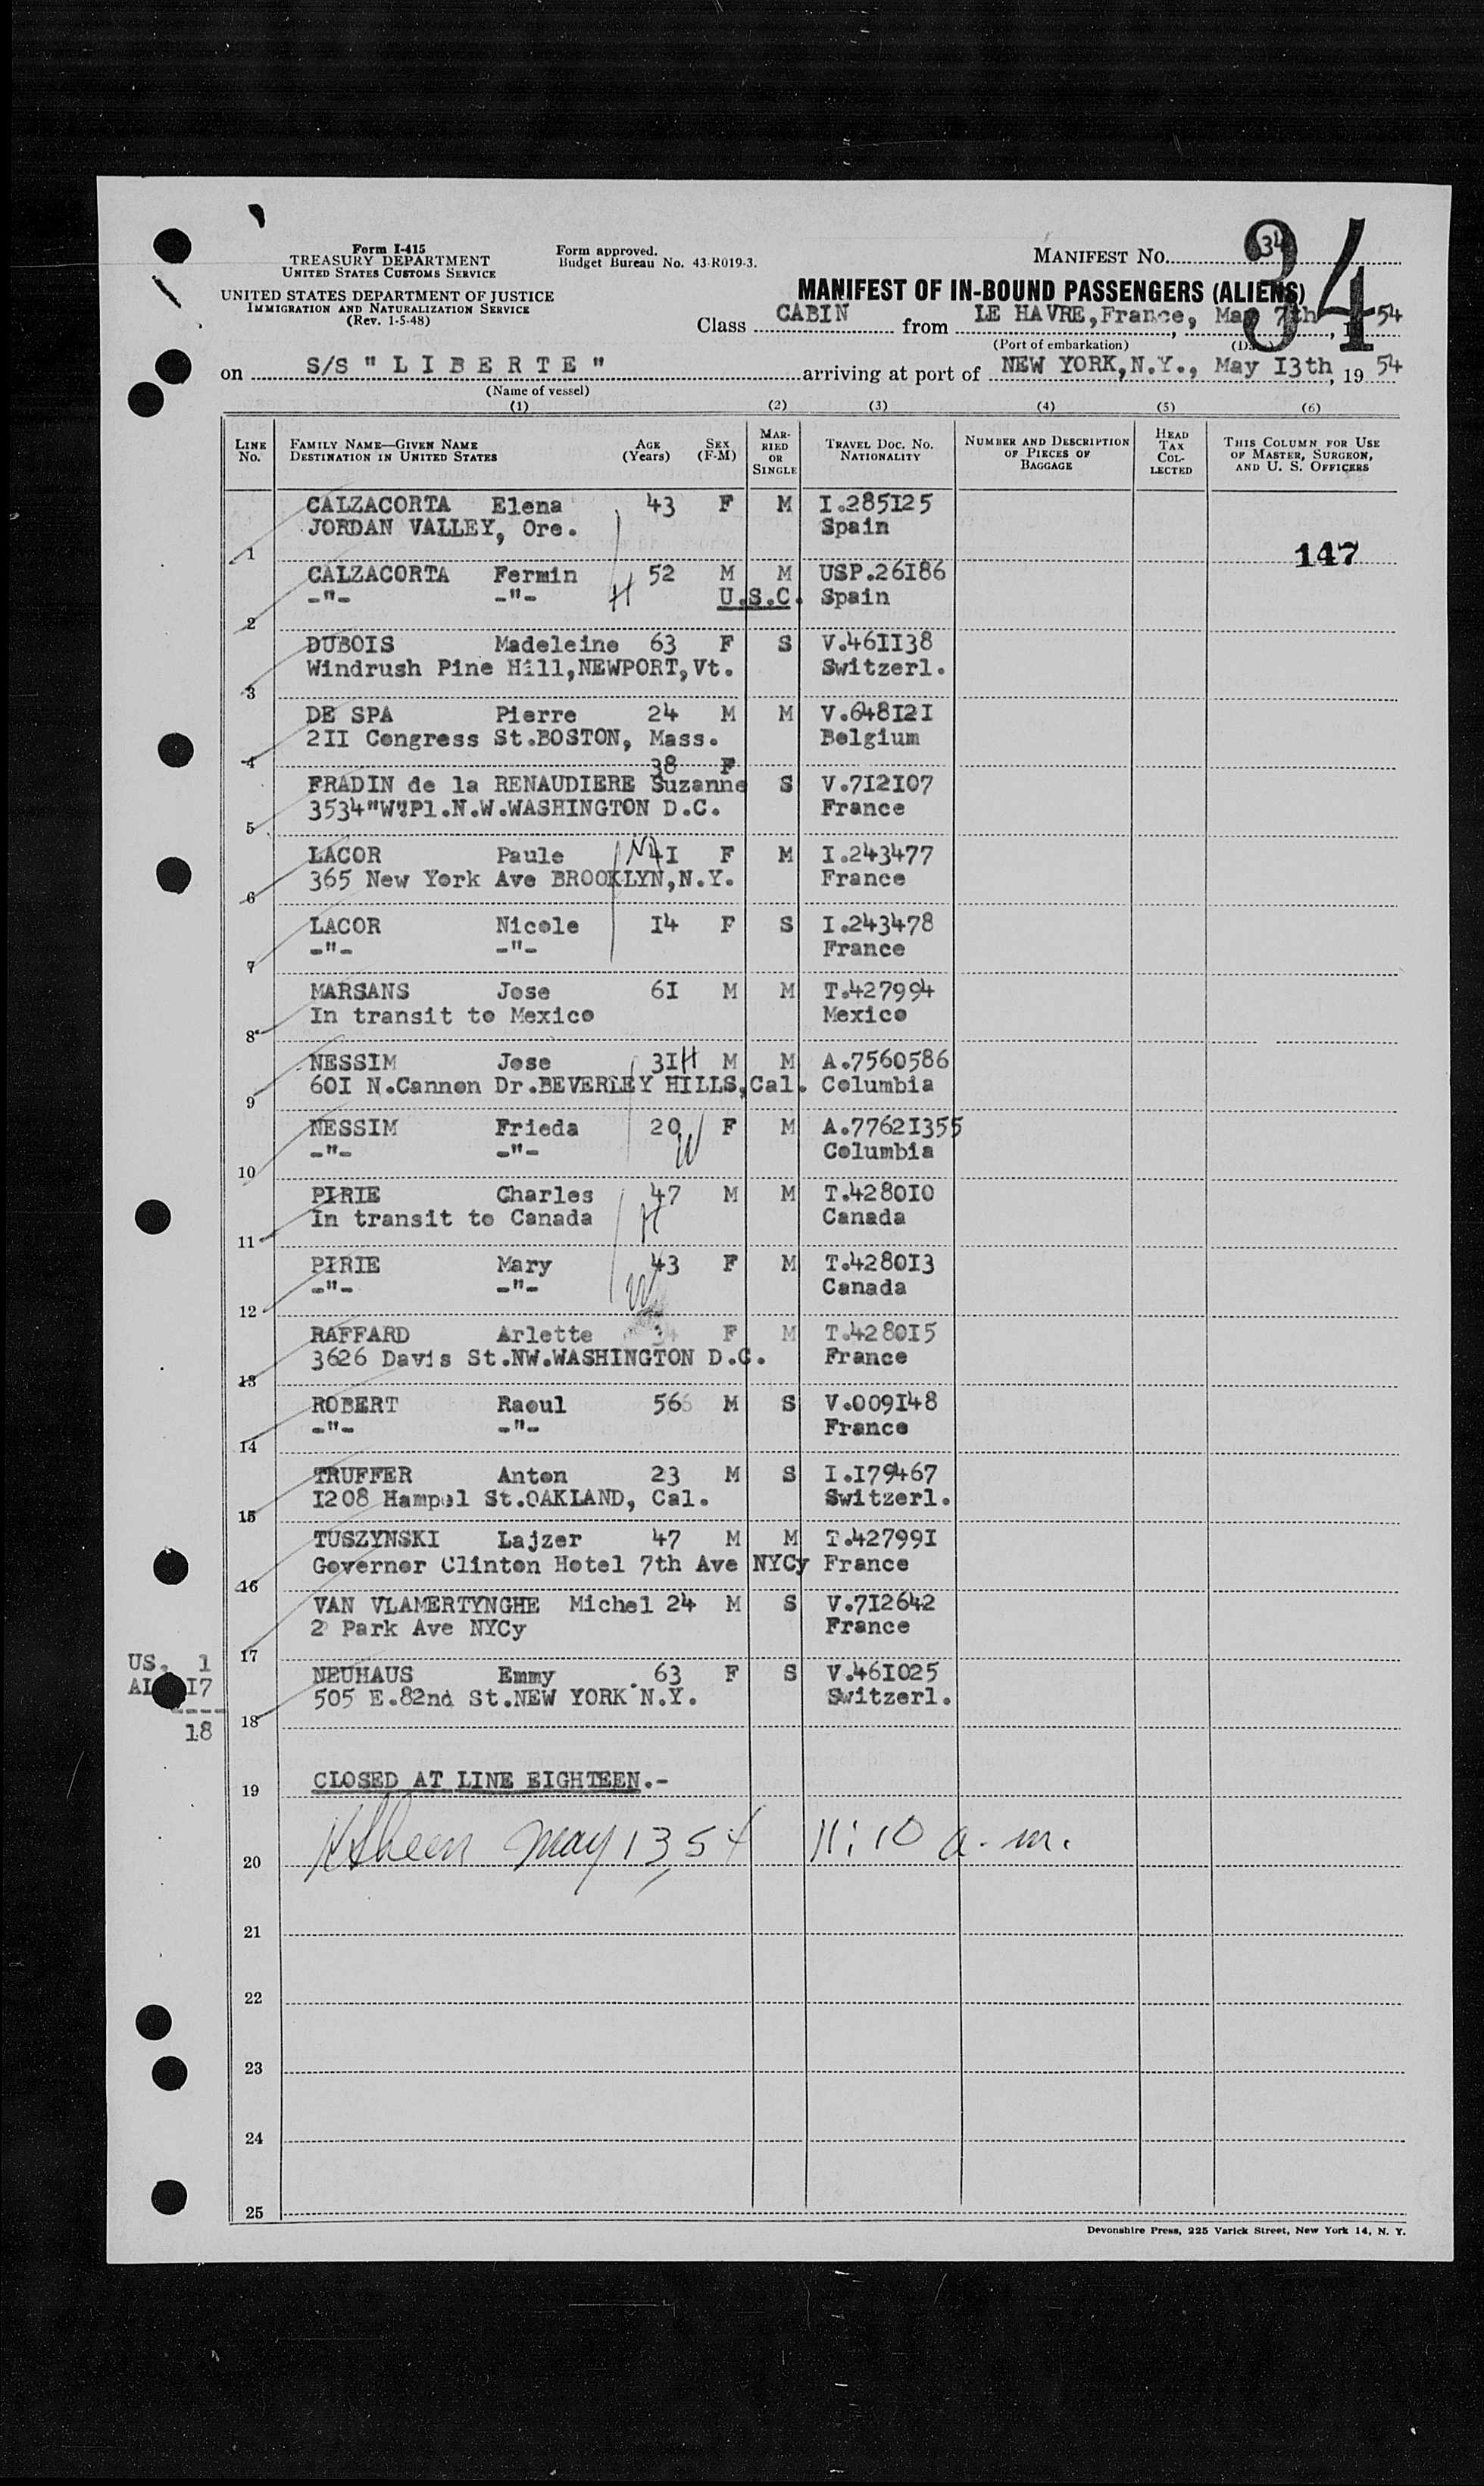 Form I-415
TREASURY DEPARTMENT
UNITED STATES CUSTOMS SERVICE
UNITED STATES DEPARTMENT OF JUSTICE
IMMIGRATION AND NATURALIZATION SERVICE
(Rev. 1-5-48)
Form approved.
Budget Bureau No. 43-R019-3.
MANIFEST No. 34
34
MANIFEST OF IN-BOUND PASSENGERS (ALIENS)
Class CABIN from LE HAVRE, France, May 7th, 54
(Port of embarkation)
on S/S " L I B E R T E " arriving at port of NEW YORK, N.Y., May I3th, 19 54
(Name of vessel)
(1) (2) (3) (4) (5) (6)
LINE No. FAMILY NAME—GIVEN NAME DESTINATION IN UNITED STATES AGE (Years) SEX (F-M) MARRIED OR SINGLE TRAVEL DOC. NO. NATIONALITY NUMBER AND DESCRIPTION OF PIECES OF BAGGAGE HEAD TAX COLLECTED THIS COLUMN FOR USE OF MASTER, SURGEON, AND U. S. OFFICERS
CALZACORTA Elena 43 F M I.285I25
JORDAN VALLEY, Ore. Spain
1 147
CALZACORTA Fermin 52 M M USP.26I86
-"- -"- H U.S.C. Spain
2
DUBOIS Madeleine 63 F S V.46II38
Windrush Pine Hill, NEWPORT, Vt. Switzerl.
3
DE SPA Pierre 24 M M V.648I2I
2II Congress St.BOSTON, Mass. Belgium
4
38 F
FRADIN de la RENAUDIERE Suzanne S V.7I2I07
3534"W"Pl.N.W.WASHINGTON D.C. France
5
LACOR Paule 4I F M I.243477
365 New York Ave BROOKLYN, N.Y. France
6
LACOR Nicole I4 F S I.243478
-"- -"- France
7
MARSANS Jose 6I M M T.427994
In transit to Mexico Mexico
8
NESSIM Jose 3I H M M A.7560586
60I N.Cannon Dr.BEVERLEY HILLS, Cal. Columbia
9
NESSIM Frieda 20 W F M A.7762I355
-"- -"- Columbia
10
PIRIE Charles 47 M M T.4280I0
In transit to Canada H Canada
11
PIRIE Mary 43 F M T.4280I3
-"- -"- W Canada
12
RAFFARD Arlette 34 F M T.4280I5
3626 Davis St.NW.WASHINGTON D.C. France
13
ROBERT Raoul 56 M S V.009I48
-"- -"- France
14
TRUFFER Anton 23 M S I.I79467
I208 Hampel St.OAKLAND, Cal. Switzerl.
15
TUSZYNSKI Lajzer 47 M M T.42799I
Governor Clinton Hotel 7th Ave NYCy France
16
VAN VLAMERTYNGHE Michel 24 M S V.7I2642
2 Park Ave NYCy France
17
US. 1
NEUHAUS Emmy 63 F S V.46I025
AL I7
505 E.82nd St.NEW YORK N.Y. Switzerl.
18
18
CLOSED AT LINE EIGHTEEN.-
19
May 13, 54 11:10 a.m.
20
21
22
23
24
25
Devonshire Press, 225 Varick Street, New York 14, N. Y.